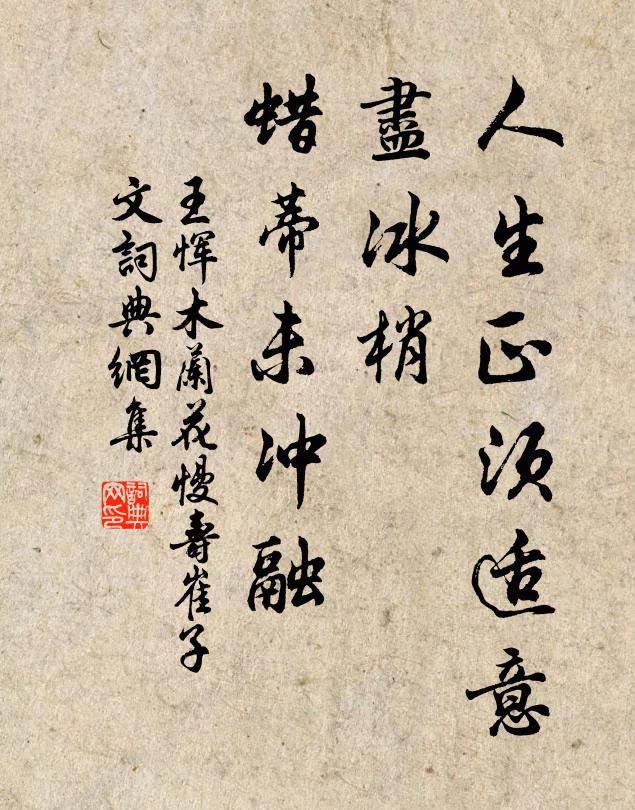 人生正须适意
盡冰梢
蜡蒂未冲融
王恽木蘭花慢壽崔子
文詞典網集
詞典网印